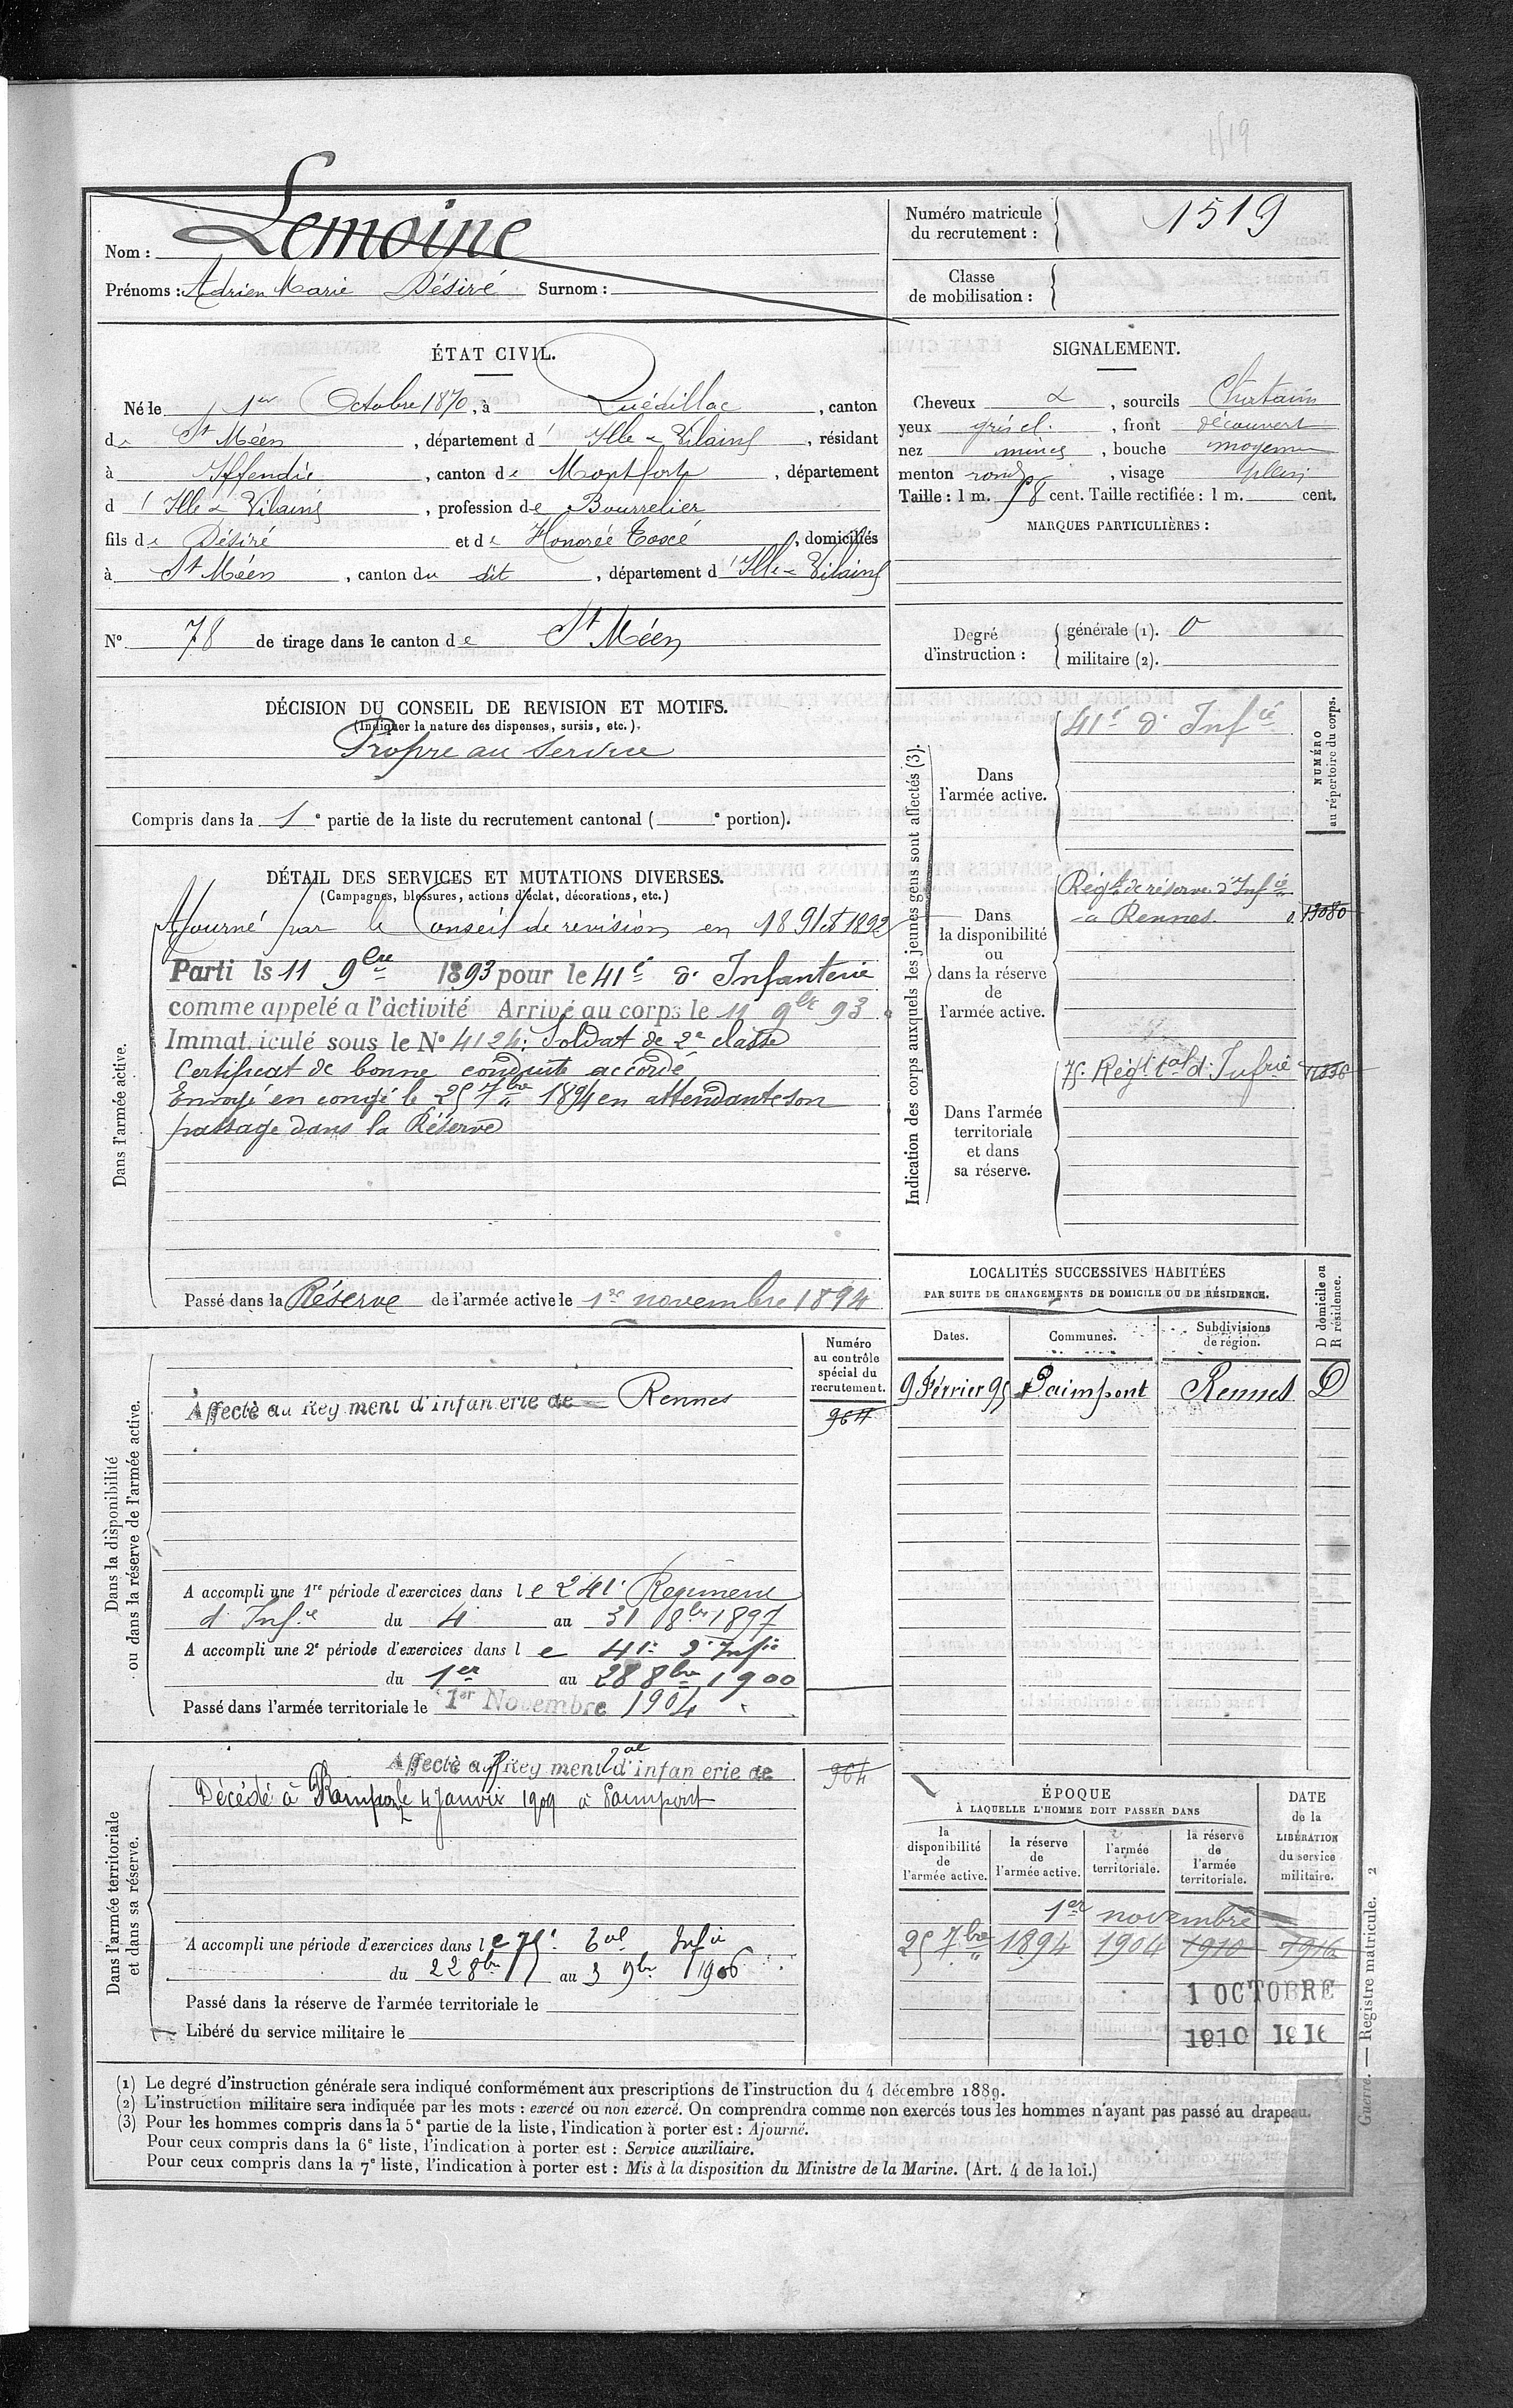 1519
Nom : Lemoine
Prénoms : Adrien Marie Désiré Surnom :
Numéro matricule du recrutement : 1519
Classe de mobilisation :
ÉTAT CIVIL.
Né le 1er Octobre 1870, à Quédillac, canton
de St Méen, département d' Ille & Vilaine, résidant
à Iffendic, canton de Montfort, département
d' Ille & Vilaine, profession de Bourrelier
fils de Désiré et de Honorée Cosсé, domiciliés
à St Méen, canton du dit, département d' Ille & Vilaine
SIGNALEMENT.
Cheveux &, sourcils Chatains
yeux gris cl., front découvert
nez mince, bouche moyenne
menton rond, visage plein
Taille : 1 m. 58 cent. Taille rectifiée : 1 m. cent.
MARQUES PARTICULIÈRES :
N° 78 de tirage dans le canton de St Méen
Degré d'instruction : générale (1). 0
militaire (2).
DÉCISION DU CONSEIL DE REVISION ET MOTIFS.
(Indiquer la nature des dispenses, sursis, etc.).
Propre au service
Compris dans la 1e partie de la liste du recrutement cantonal ( e portion).
DÉTAIL DES SERVICES ET MUTATIONS DIVERSES.
(Campagnes, blessures, actions d'éclat, décorations, etc.)
Dans l'armée active.
Ajourné par le Conseil de revision en 1891 et 1892
Parti le 11 9bre 1893 pour le 41e d' Infanterie
comme appelé a l'àctivité Arrivé au corps le 11 9bre 93
Immat iculé sous le N° 4124. Soldat de 2e classe
Certificat de bonne conduite accordé
Envoyé en congé le 25 7bre 1894 en attendant son
passage dans la Réserve
Passé dans la Réserve de l'armée active le 1er novembre 1894
Indication des corps auxquels les jeunes gens sont affectés (3).
NUMÉRO au répertoire du corps.
Dans l'armée active.
41e d' Infie
Dans la disponibilité ou dans la réserve de l'armée active.
Régt de réserve d'Infie
à Rennes 13080
Dans l'armée territoriale et dans sa réserve.
75e Régt tal d' Infrie
LOCALITÉS SUCCESSIVES HABITÉES
PAR SUITE DE CHANGEMENTS DE DOMICILE OU DE RÉSIDENCE.
D domicile ou R résidence.
Dates. Communes. Subdivisions de région.
9 Février 95 Paimpont Rennes D
Dans la disponibilité ou dans la réserve de l'armée active.
Numéro au contrôle spécial du recrutement.
Affecté au Rey ment d'infan erie de Rennes
964
A accompli une 1re période d'exercices dans le 241e Régiment
d' Infie du 4 au 31 8bre 1897
A accompli une 2e période d'exercices dans le 41e d' Infie
du 1er au 28 8bre 1900
Passé dans l'armée territoriale le 1er Novembre 1904
Dans l'armée territoriale et dans sa réserve.
Affecté au Rey ment tal d'infan erie de
964
Décédé à Paimpont le 4 Janvier 1909 à Paimpont
A accompli une période d'exercices dans le 75e tal Infie
du 22 8bre au 3 9bre 1906
Passé dans la réserve de l'armée territoriale le
Libéré du service militaire le
ÉPOQUE
À LAQUELLE L'HOMME DOIT PASSER DANS
DATE de la LIBÉRATION du service militaire.
la disponibilité de l'armée active. la réserve de l'armée active. l'armée territoriale. la réserve de l'armée territoriale.
1er novembre
25 7bre 1894 1904 1910 1916
1 OCTOBRE
1910 1916
Guerre. — Registre matricule. 2
(1) Le degré d'instruction générale sera indiqué conformément aux prescriptions de l'instruction du 4 décembre 1889.
(2) L'instruction militaire sera indiquée par les mots : exercé ou non exercé. On comprendra comme non exercés tous les hommes n'ayant pas passé au drapeau.
(3) Pour les hommes compris dans la 5e partie de la liste, l'indication à porter est : Ajourné.
Pour ceux compris dans la 6e liste, l'indication à porter est : Service auxiliaire.
Pour ceux compris dans la 7e liste, l'indication à porter est : Mis à la disposition du Ministre de la Marine. (Art. 4 de la loi.)